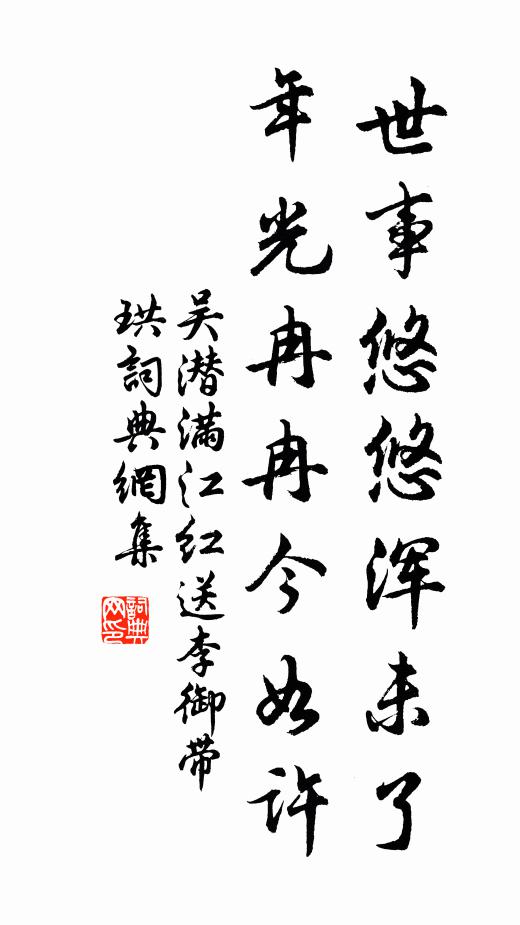 世事悠悠浑未了
年光冉冉今如许
吴潜满江红送李御带
珙詞典網集
詞典网印